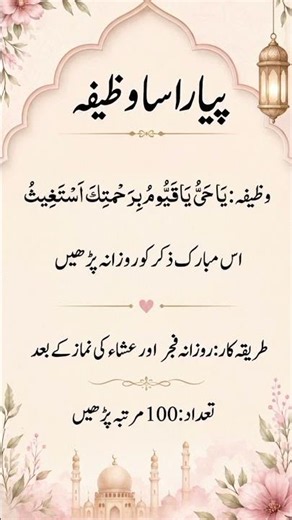 پیارا سا وظیفہ
وظیفہ: یَا حَیُّ یَا قَیُّومُ بِرَحْمَتِكَ اَسْتَغِیثُ
اس مبارک ذکر کو روزانہ پڑھیں
طریقہ کار: روزانہ فجر اور عشاء کی نماز کے بعد
تعداد: 100 مرتبہ پڑھیں